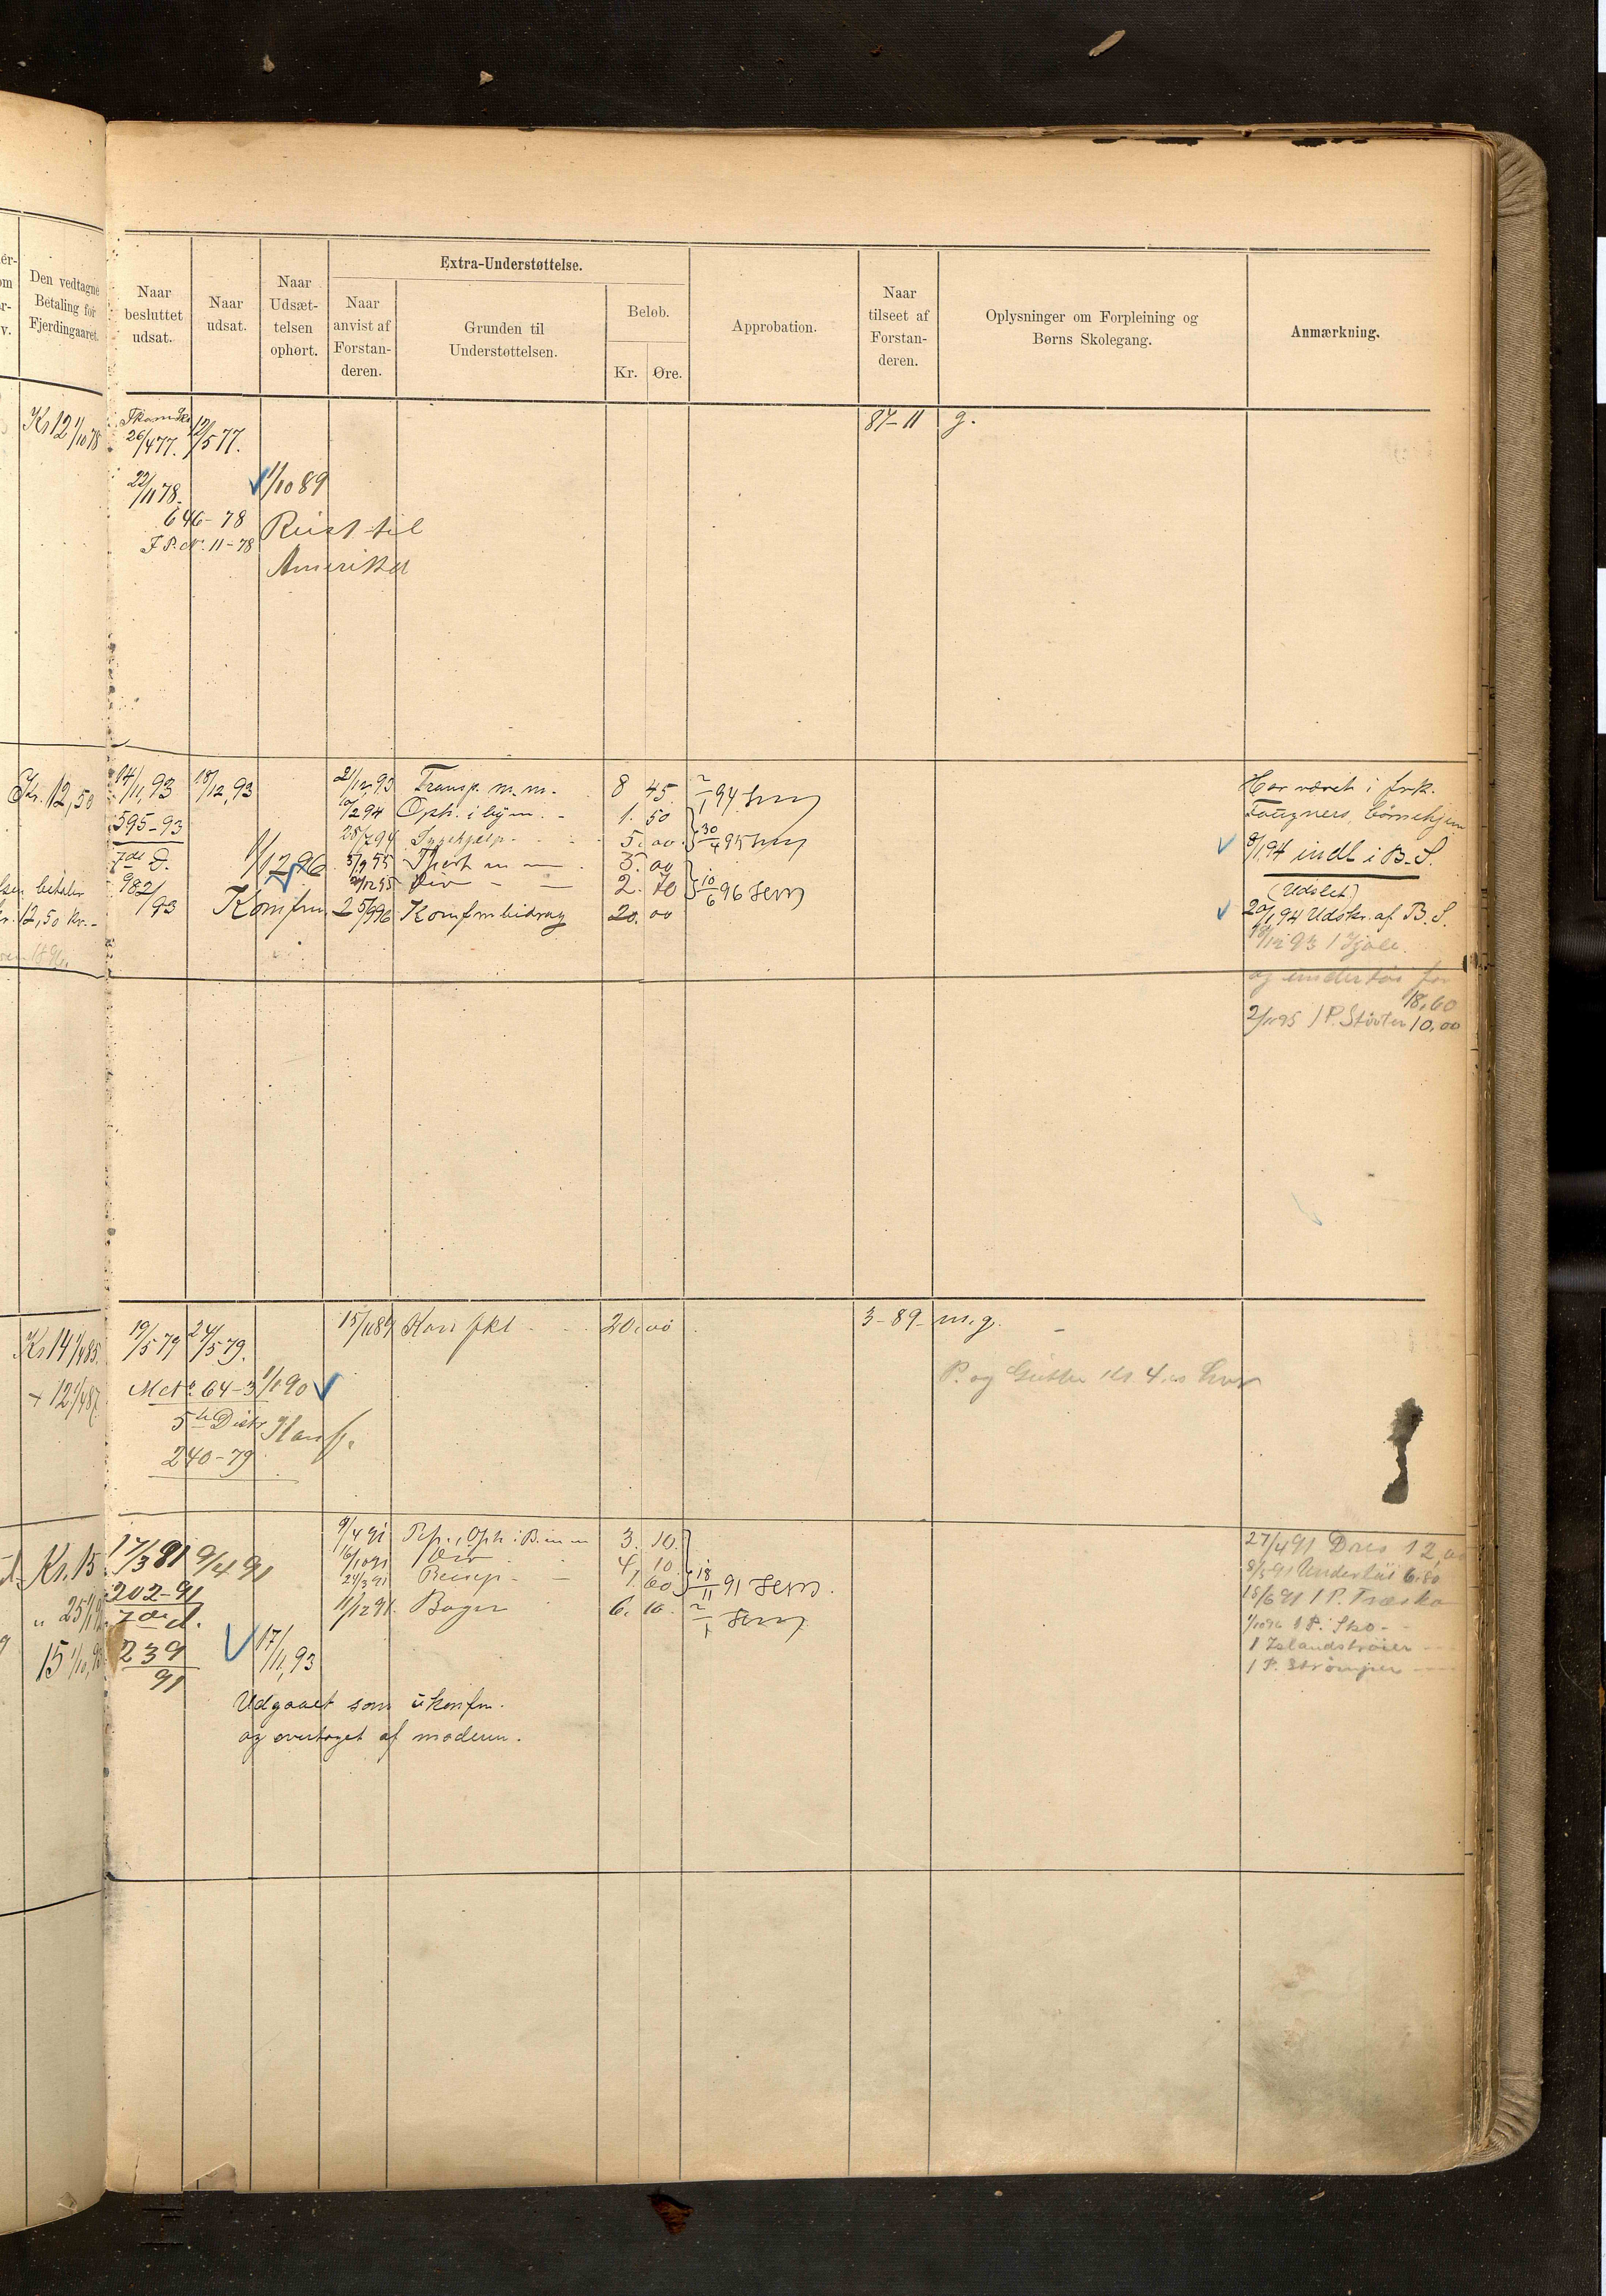 Den vedtagne
Betaling for
Fjerdingaaret.
Naar
besluttet
udsat.
Naar
udsat.
Naar
Udsæt-
telsen
ophørt.
Extra-Understøttelse.
Naar
anvist af
Forstan-
deren.
Grunden til
Understøttelsen.
Beløb.
Kr. Øre.
Approbation.
Naar
tilseet af
Forstan-
deren.
Oplysninger om Forpleining og
Børns Skolegang.
Anmærkning.
Kr 12 1/10 78
26/4 77. 12/5 77.
87-11 g.
22/11 78.
1/10 89
646-78
Reist til
Amerika
Kr. 12,50
14/11,93 18/12,93
21/12,93 Transp. m.m. 8 45
2/1 94
10/2 94 Oph. i byen. 1. 50
595-93
28/7 94 Sygehjælp 5. 00
30/4 95
7de D.
1/12 96
5/9 95 3. 00
982/93
21/12 95 Div 2. 70
10/6 96
betaler
12,50 kr.
Komfrm. 25/9 96 Komfmbidrag 20. 00
Har været i frk.
Børnehjem
8/1,94 indl i B.S.
(Udslet)
20/1,94 Udskr. af B.S.
18/12 93 1 Kjole
og undertøi for
18,60
2/11 95 1 P. Støvler 10,00
Kr 14 1/4 85.
+ 12 1/4 87.
19/5 79 24/5 79.
15/11 89 Konfkl 20. 00
3-89 m.g.
64-3 1/1 90
5te Distr Konf.
240-79
P. og
Kr. 15
" 25
15 1/10,93
17/3 91 9/4 91
202-91
7de d.
239
91
17/11,93
9/4 91 Rep., Oph. i B. 3. 10
16/10 91 Div 4. 10
24/3 91 1. 60
18/11 91
11/12 91 Bøger 6. 10
2/1
Udgaaet som ukonfm.
og overtaget af moderen.
27/4 91 Dres 12,00
8/5 91 Undertøi 6.80
18/6 91 1 P. Træsko
1 P. Sko
1 Islandstrøier
1 P. Strømper